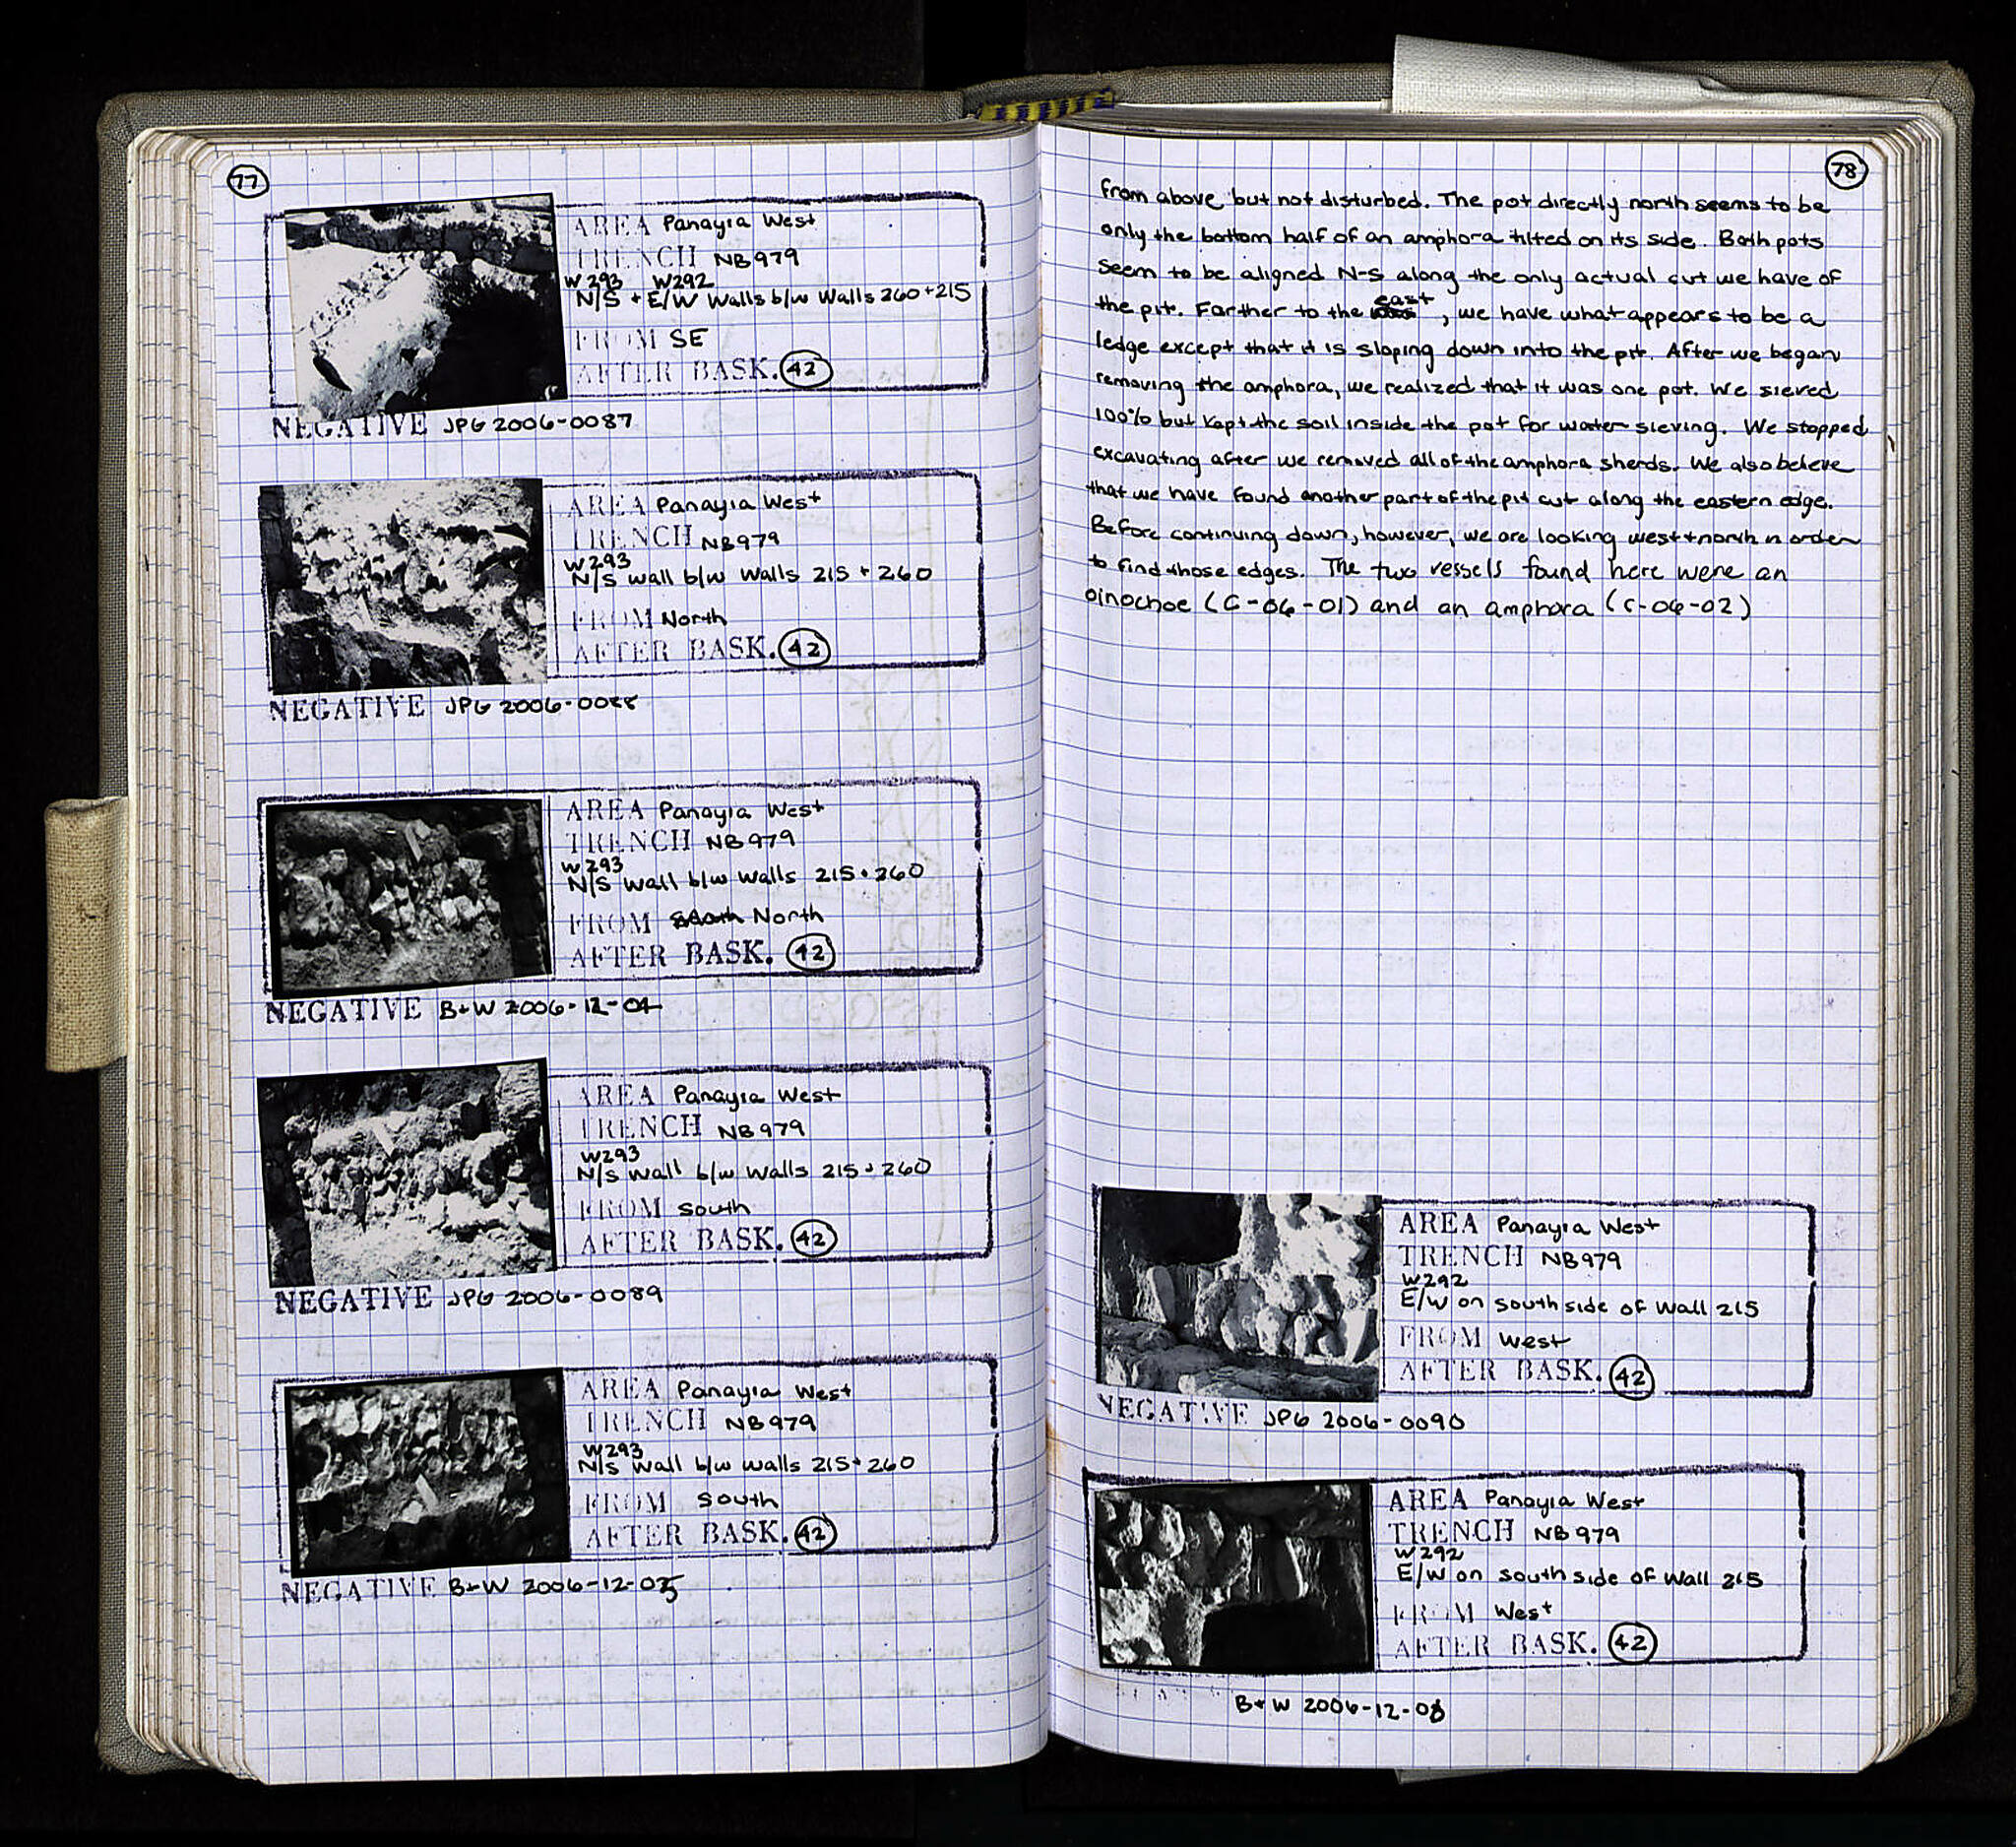 77
AREA Panayia West
TRENCH NB979
W293 W292
N/S + E/W Walls b/w Walls 260+215
FROM SE
AFTER BASK. 42
NEGATIVE JPG 2006-0087
AREA Panayia West
TRENCH NB979
W293
N/S wall b/w Walls 215 + 260
FROM North
AFTER BASK. 42
NEGATIVE JPG 2006-0088
AREA Panayia West
TRENCH NB979
W293
N/S wall b/w walls 215+260
FROM North
AFTER BASK. 42
NEGATIVE B+W 2006-12-04
AREA Panayia West
TRENCH NB979
W293
N/S wall b/w Walls 215+260
FROM South
AFTER BASK. 42
NEGATIVE JPG 2006-0089
AREA Panayia West
TRENCH NB979
W293
N/S wall b/w walls 215+260
FROM South
AFTER BASK. 42
NEGATIVE B+W 2006-12-05
78
from above but not disturbed. The pot directly north seems to be
only the bottom half of an amphora tilted on its side. Both pots
seem to be aligned N-S along the only actual cut we have of
the pit. Farther to the east, we have what appears to be a
ledge except that it is sloping down into the pit. After we began
removing the amphora, we realized that it was one pot. We sieved
100% but kept the soil inside the pot for water sieving. We stopped
excavating after we removed all of the amphora sherds. We also believe
that we have found another part of the pit cut along the eastern edge.
Before continuing down, however, we are looking west+north in order
to find those edges. The two vessels found here were an
oinochoe (C-06-01) and an amphora (C-06-02)
AREA Panayia West
TRENCH NB979
W292
E/W on south side of Wall 215
FROM West
AFTER BASK. 42
NEGATIVE JPG 2006-0090
AREA Panayia West
TRENCH NB979
W292
E/W on south side of Wall 215
FROM West
AFTER BASK. 42
B+W 2006-12-08